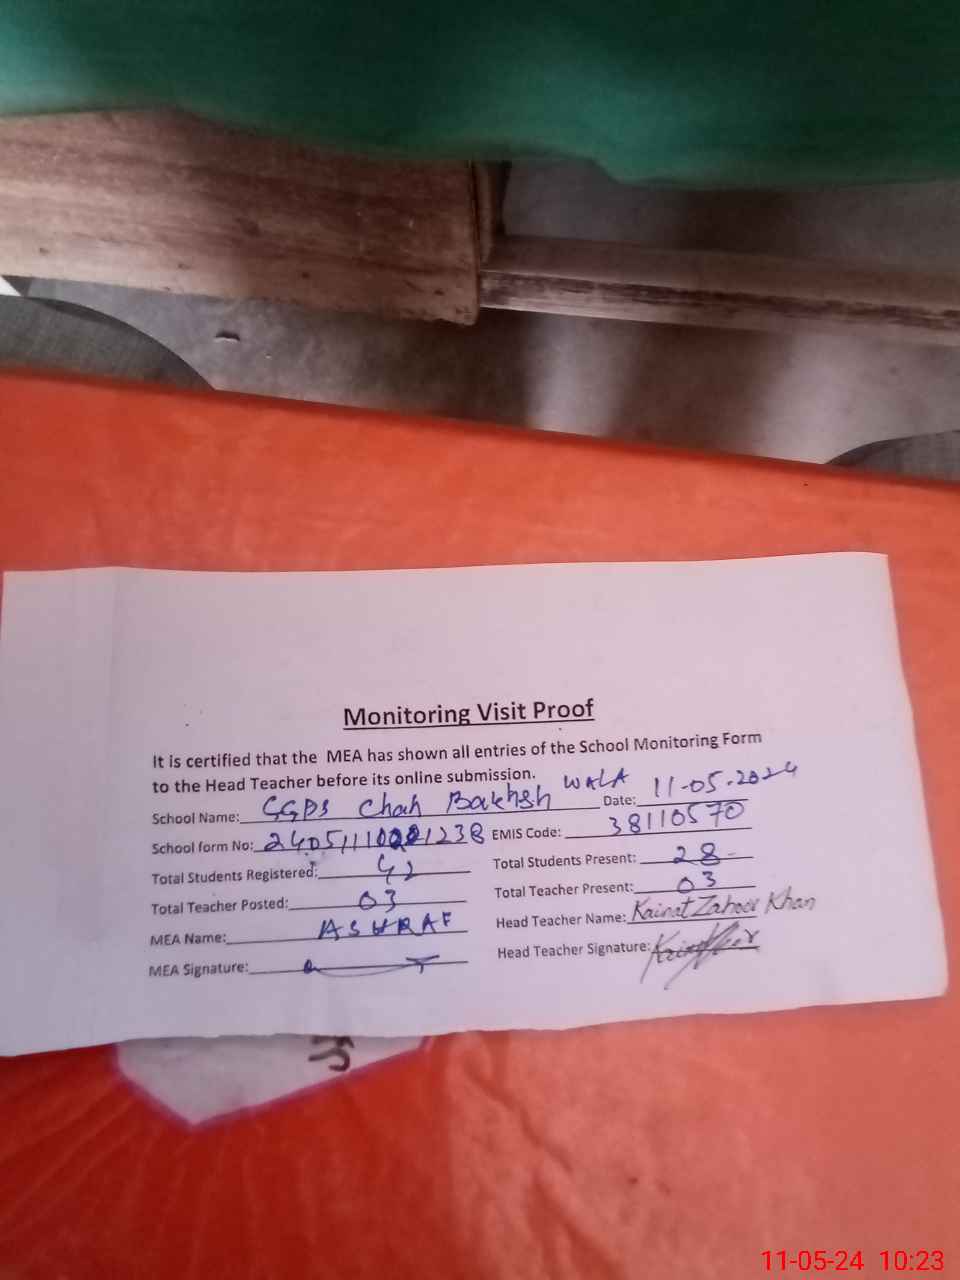 Monitoring Visit Proof
It is certified that the MEA has shown all entries of the School Monitoring Form
to the Head Teacher before its online submission.
School Name: GGPS Chah Bakhsh WALA Date: 11-05-2024
School form No: EMIS Code: 38110570
Total Students Registered: 42 Total Students Present: 28
Total Teacher Posted: 03 Total Teacher Present: 03
MEA Name: ASHRAF Head Teacher Name: Kainat Zahoor Khan
MEA Signature: Head Teacher Signature:
11-05-24 10:23